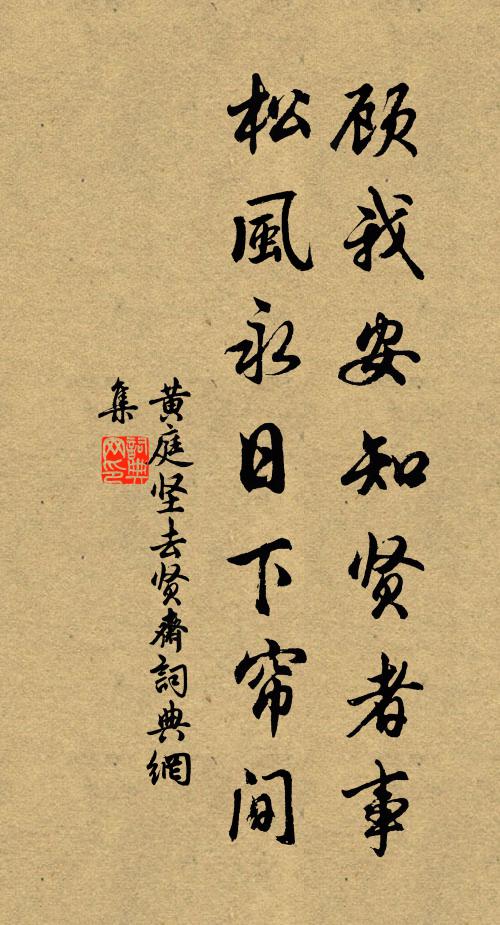 顾我安知贤者事
松風永日下帘间
黄庭坚去贤斋詞典網
集
詞典网印